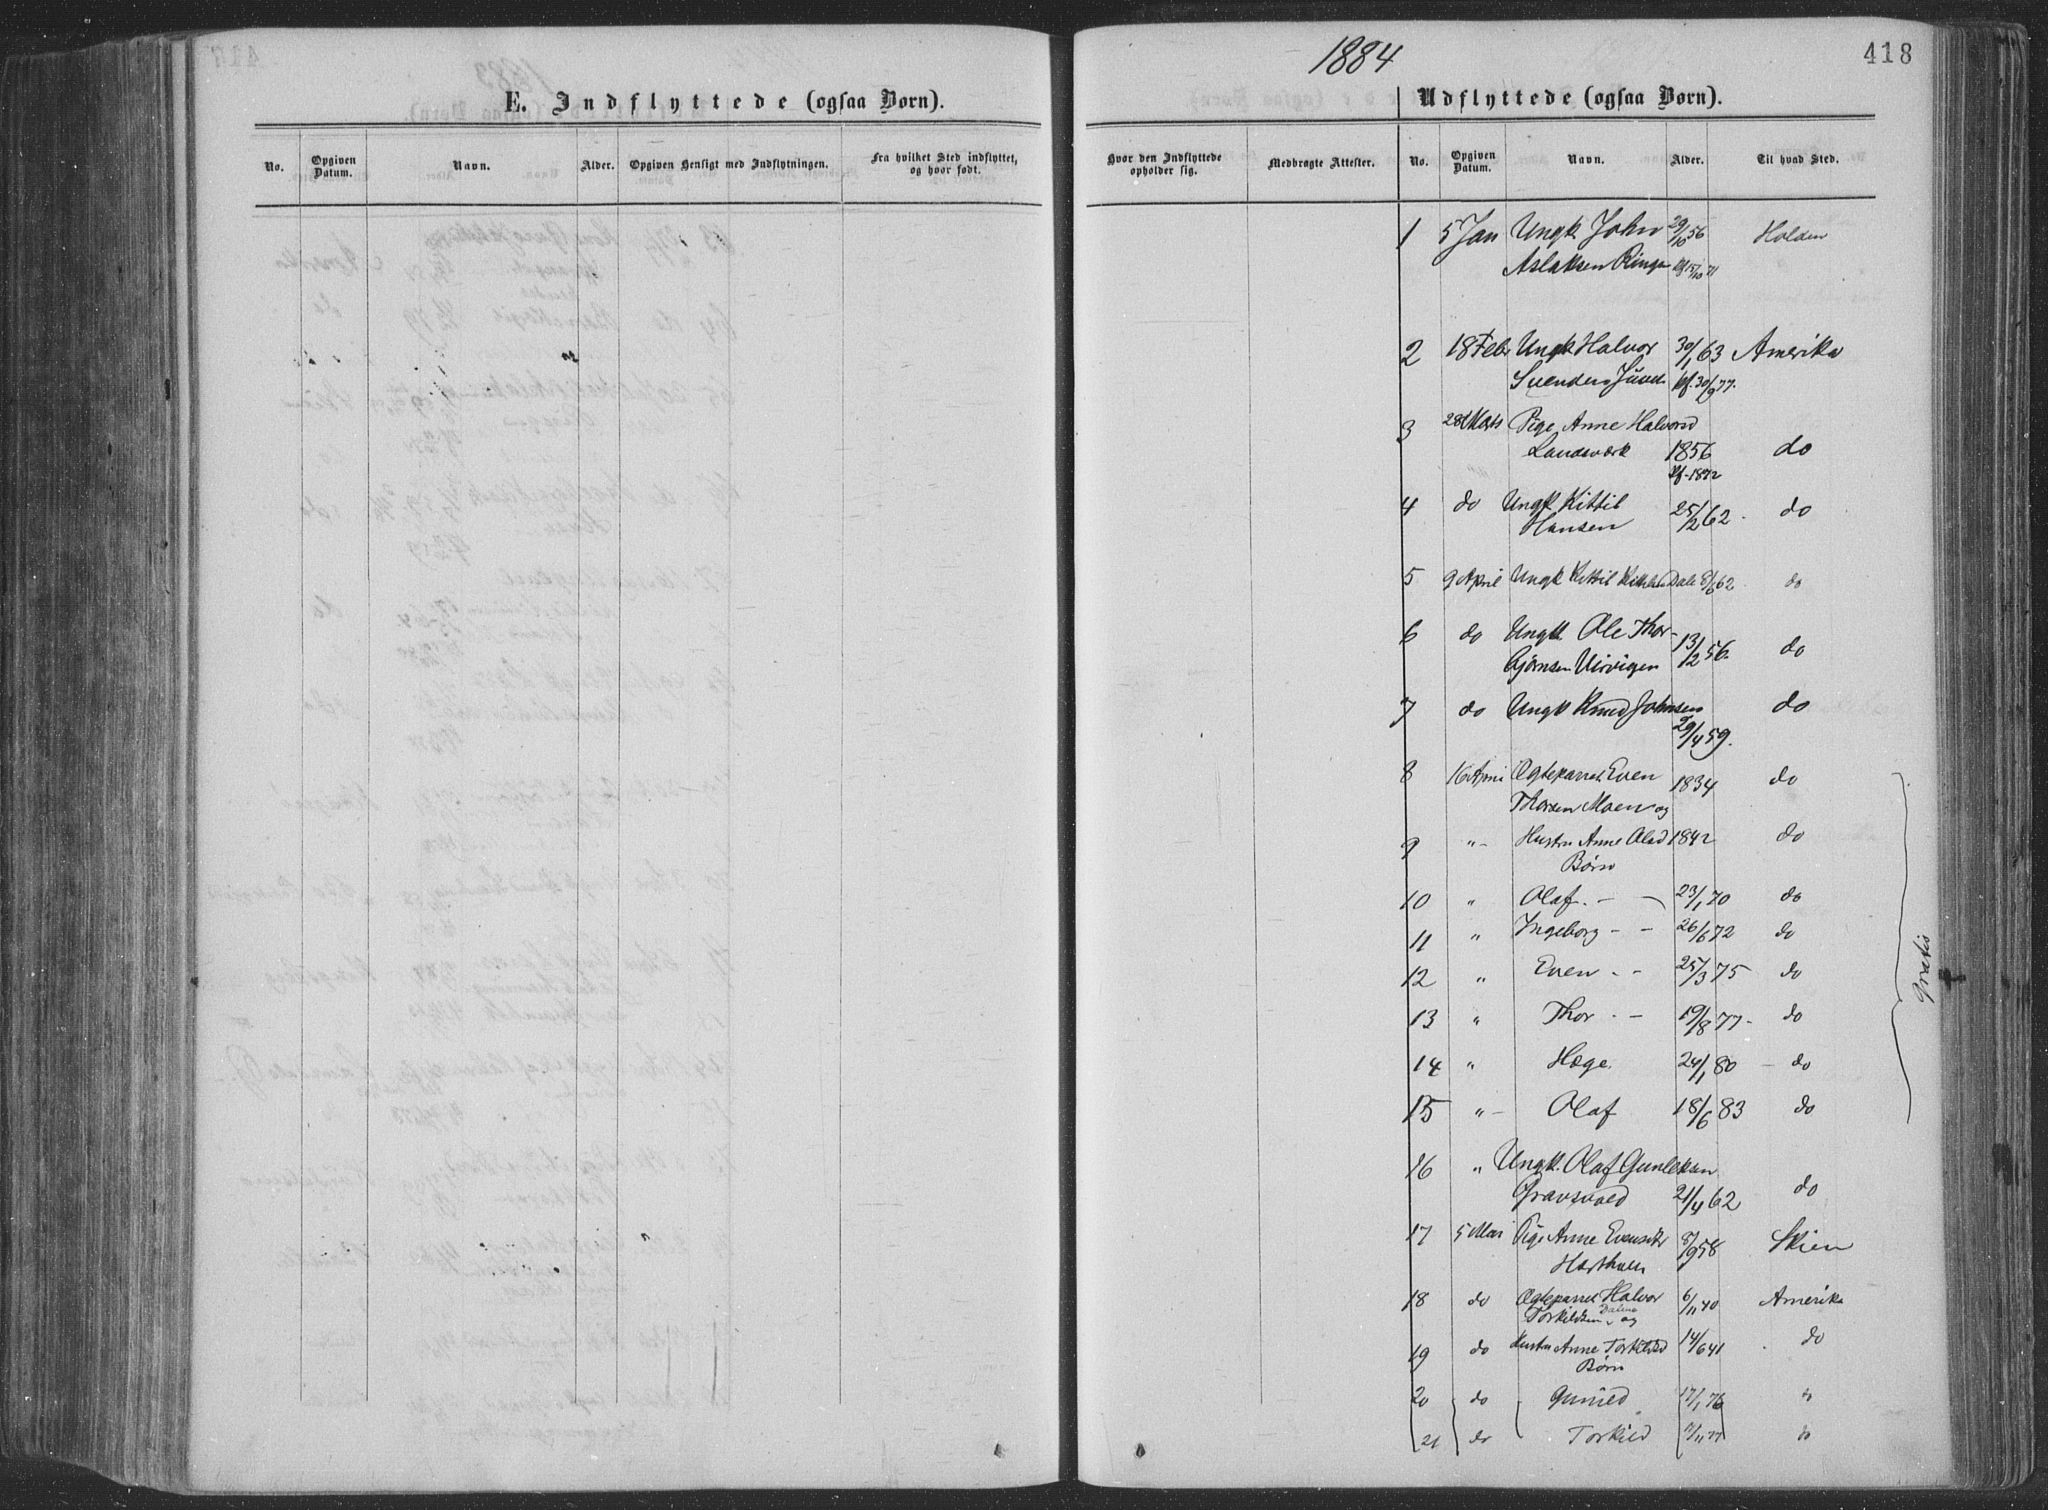 1884
418
E. Indflyttede (ogsaa Børn).
Udflyttede (ogsaa Børn).
No. Opgiven Datum. Navn. Alder. Opgiven Hensigt med Indflytningen. Fra hvilket Sted indflyttet, og hvor født.
Hvor den Indflyttede opholder sig. Medbragte Attester. No. Opgiven Datum. Navn. Alder. Til hvad Sted.
1 5 Jan Ungk. John 29/10 56 Holden
Aslaksen Ringa Kf 15/10 71
2 18 Febr Ungk Halvor 30/1 63 Amerika
Svendsen Juvel Kf. 30/9 77.
3 28 Marts Pige Anne Halvorsd do
Landsværk 1856
Kf-1872
4 do Ungk Kittil 25/2 62. do
Hansen
5 9 April Ungk Kittil Kittilsen Dale 8/6 62. do
6 do Ungk Ole Thor- 13/2 56. do
bjørnsen Virvigen
7 do Ungk Knud Johnsen do
29/4 59.
8 16 April Ægteparret Even 1834 do
Thorsen Moen og
9 "- Hustru Anne Olsd 1842 do
Børn
10 " Olaf. - 23/1 70 do
11 " Ingeborg - - 26/6 72 do
12 " Even - - 25/3 75 do
13 " Thor - - 19/8 77- do
14 " Hæge. 24/1 80 - do
15 "- Olaf 18/6 83 do
Gratis
16 " Ungk. Olaf Gunleksen
Gravsvold 21/4 62 do
17 5 Mai Pige Anne Evensdtr 8/9 58 Skien
18 do Ægteparret Halvor 6/11 40 Amerika
Torkildsen Dalene og
19 do Hustru Anne Torkildsd 14/6 41 do
Børn
20 do Gunild 17/1 76 do
21 do Torkild 11/11 77 do